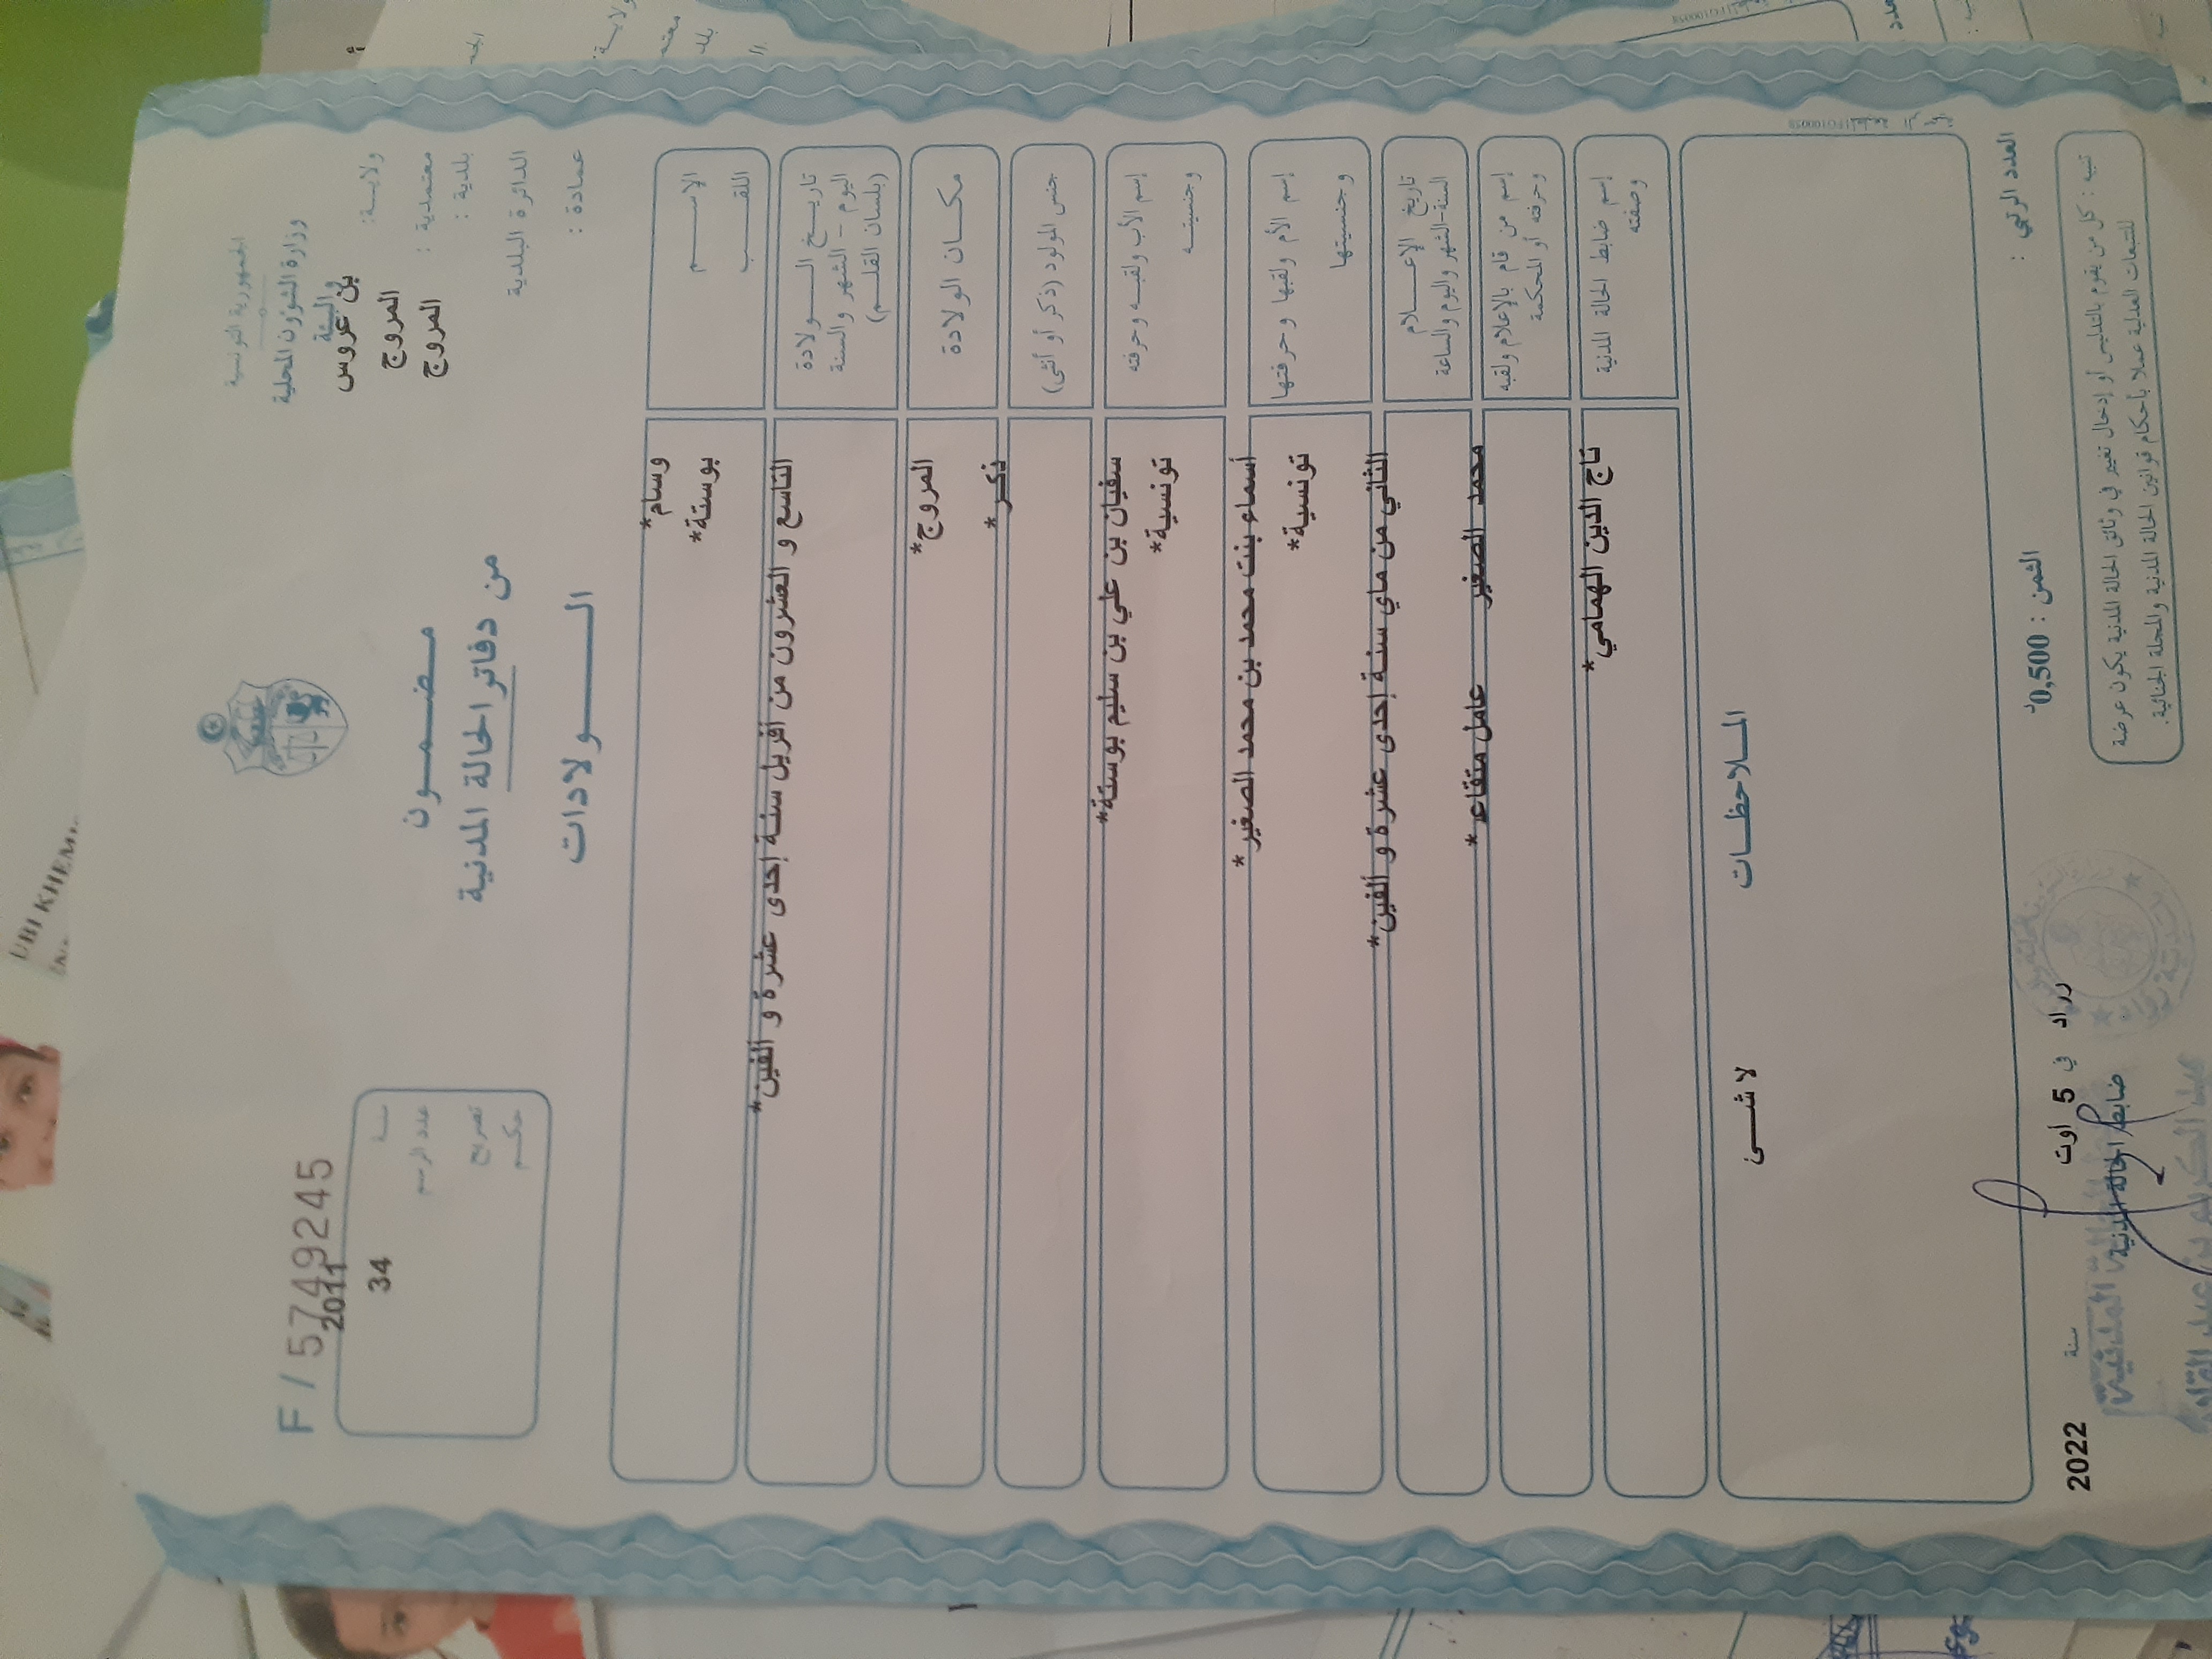 الجمهورية التونسية
وزارة الشؤون المحلية
والبيئة
ولايـــة: بن عروس
معتمدية : المروج
بلدية : المروج
الدائرة البلدية
عمادة :
مـضـــمـــون
من دفاتر الحالة المدنية
الـــــولادات
F / 5749245
سنـــة 2011
عدد الرسم 34
تصريح
حكـــم
الإســـــم وسام*
اللقـــــب بوستة*
تاريـــخ الـــــولادة
اليوم - الشهر والسنة
(بلسان القلـــم)
التاسع و العشرون من افريل سنة إحدى عشرة و ألفين*
مكـــان الولادة المروج*
جنس المولود (ذكر أو أنثى) ذكر*
إسم الأب ولقبـــه وحرفته سفيان بن علي بن سليم بوستة*
وجنسيتـــه تونسية*
إسم الأم ولقبها وحرفتها أسماء بنت محمد بن محمد الصغير*
وجنسيتها تونسية*
تاريخ الإعـــــلام
السنة-الشهر واليوم والساعة
الثاني من ماي سنة إحدى عشرة و ألفين*
إسم من قام بالإعلام ولقبه
وحرفته أو المحكمة
محمد الصغير عامل متقاعد*
إسم ضابط الحالة المدنية
وصفته
تاج الدين الهمامي*
المـــلاحظـــات
لا شـــئ
العدد الرتبي :
الثمن : 0,500د
رواد في 5 اوت سنة 2022
ضابط الحالة المدنية
تنبيه : كل من يقوم بالتدليس أو إدخال تغيير في وثائق الحالة المدنية يكون عرضة
للتتبعات العدلية عملا بأحكام قوانين الحالة المدنية والمجلة الجنائية.